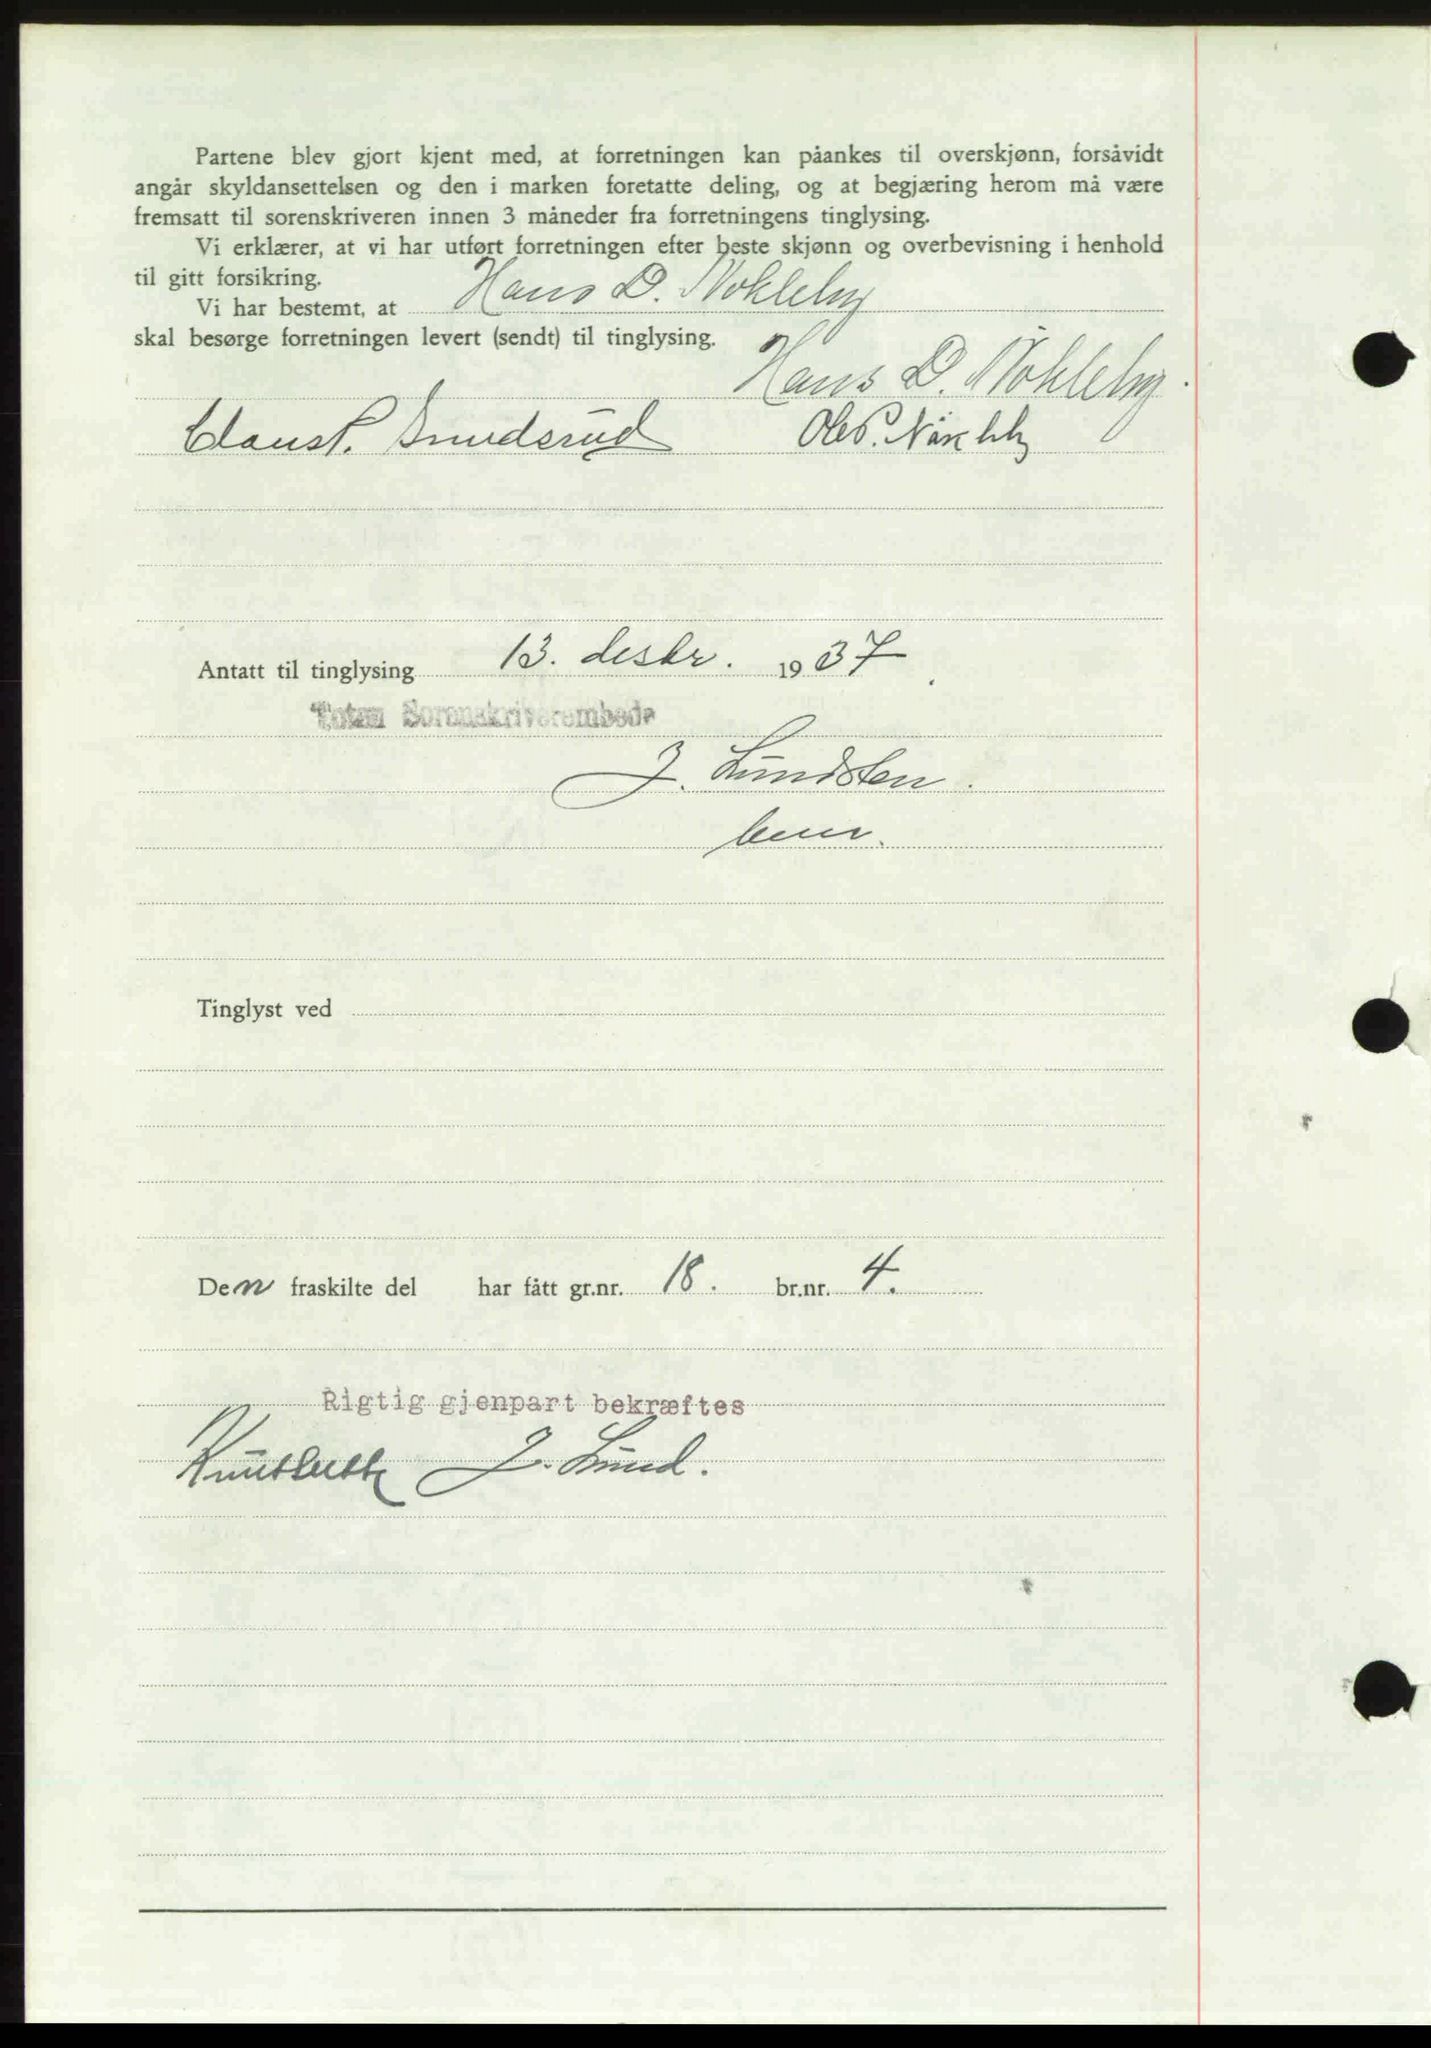 Partene blev gjort kjent med, at forretningen kan påankes til overskjønn, forsåvidt
angår skyldansettelsen og den i marken foretatte deling, og at begjæring herom må være
fremsatt til sorenskriveren innen 3 måneder fra forretningens tinglysing.
Vi erklærer, at vi har utført forretningen efter beste skjønn og overbevisning i henhold
til gitt forsikring.
Vi har bestemt, at Hans D. Nøkleby
skal besørge forretningen levert (sendt) til tinglysing.
Hans D. Nøkleby.
Claus P. Smedsrud Ole P. Nøkleby
Antatt til tinglysing 13. desbr. 1937.
Toten Sorenskriverembede
J. Lundsten.
Tinglyst ved
Den fraskilte del har fått gr.nr. 18. br.nr. 4.
Rigtig gjenpart bekræftes
J. Lund.